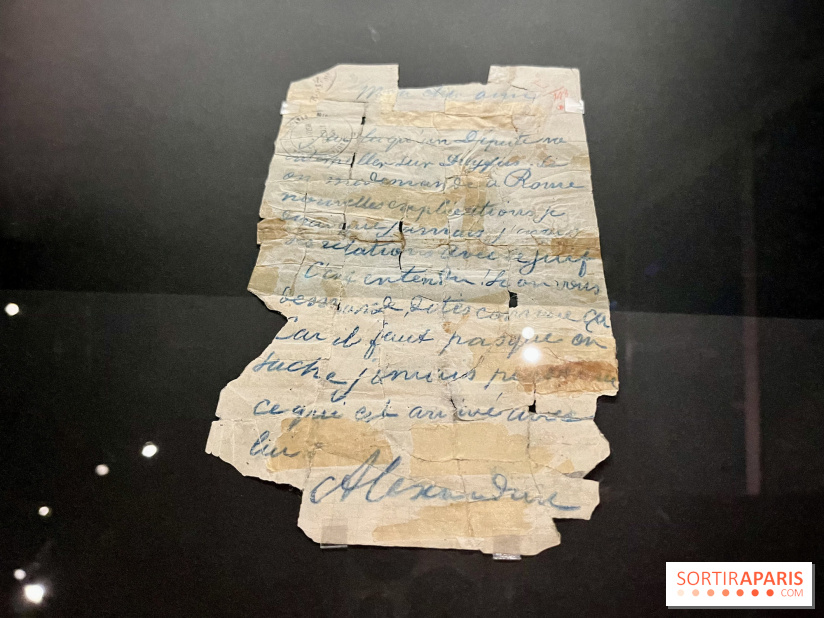 Mon cher ami
J'ai lu qu'un député va
interpeller sur Dreyfus. Si
on me demande à Rome
nouvelles explications je
dirai que jamais j'avais
des relations avec ce Juif
C'est entendu. Si on vous
demande dites comme ça
Car il faut pas que on
sache jamais personne
ce qui est arrivé avec
lui.
Alexandrine
SORTIRAPARIS
.COM